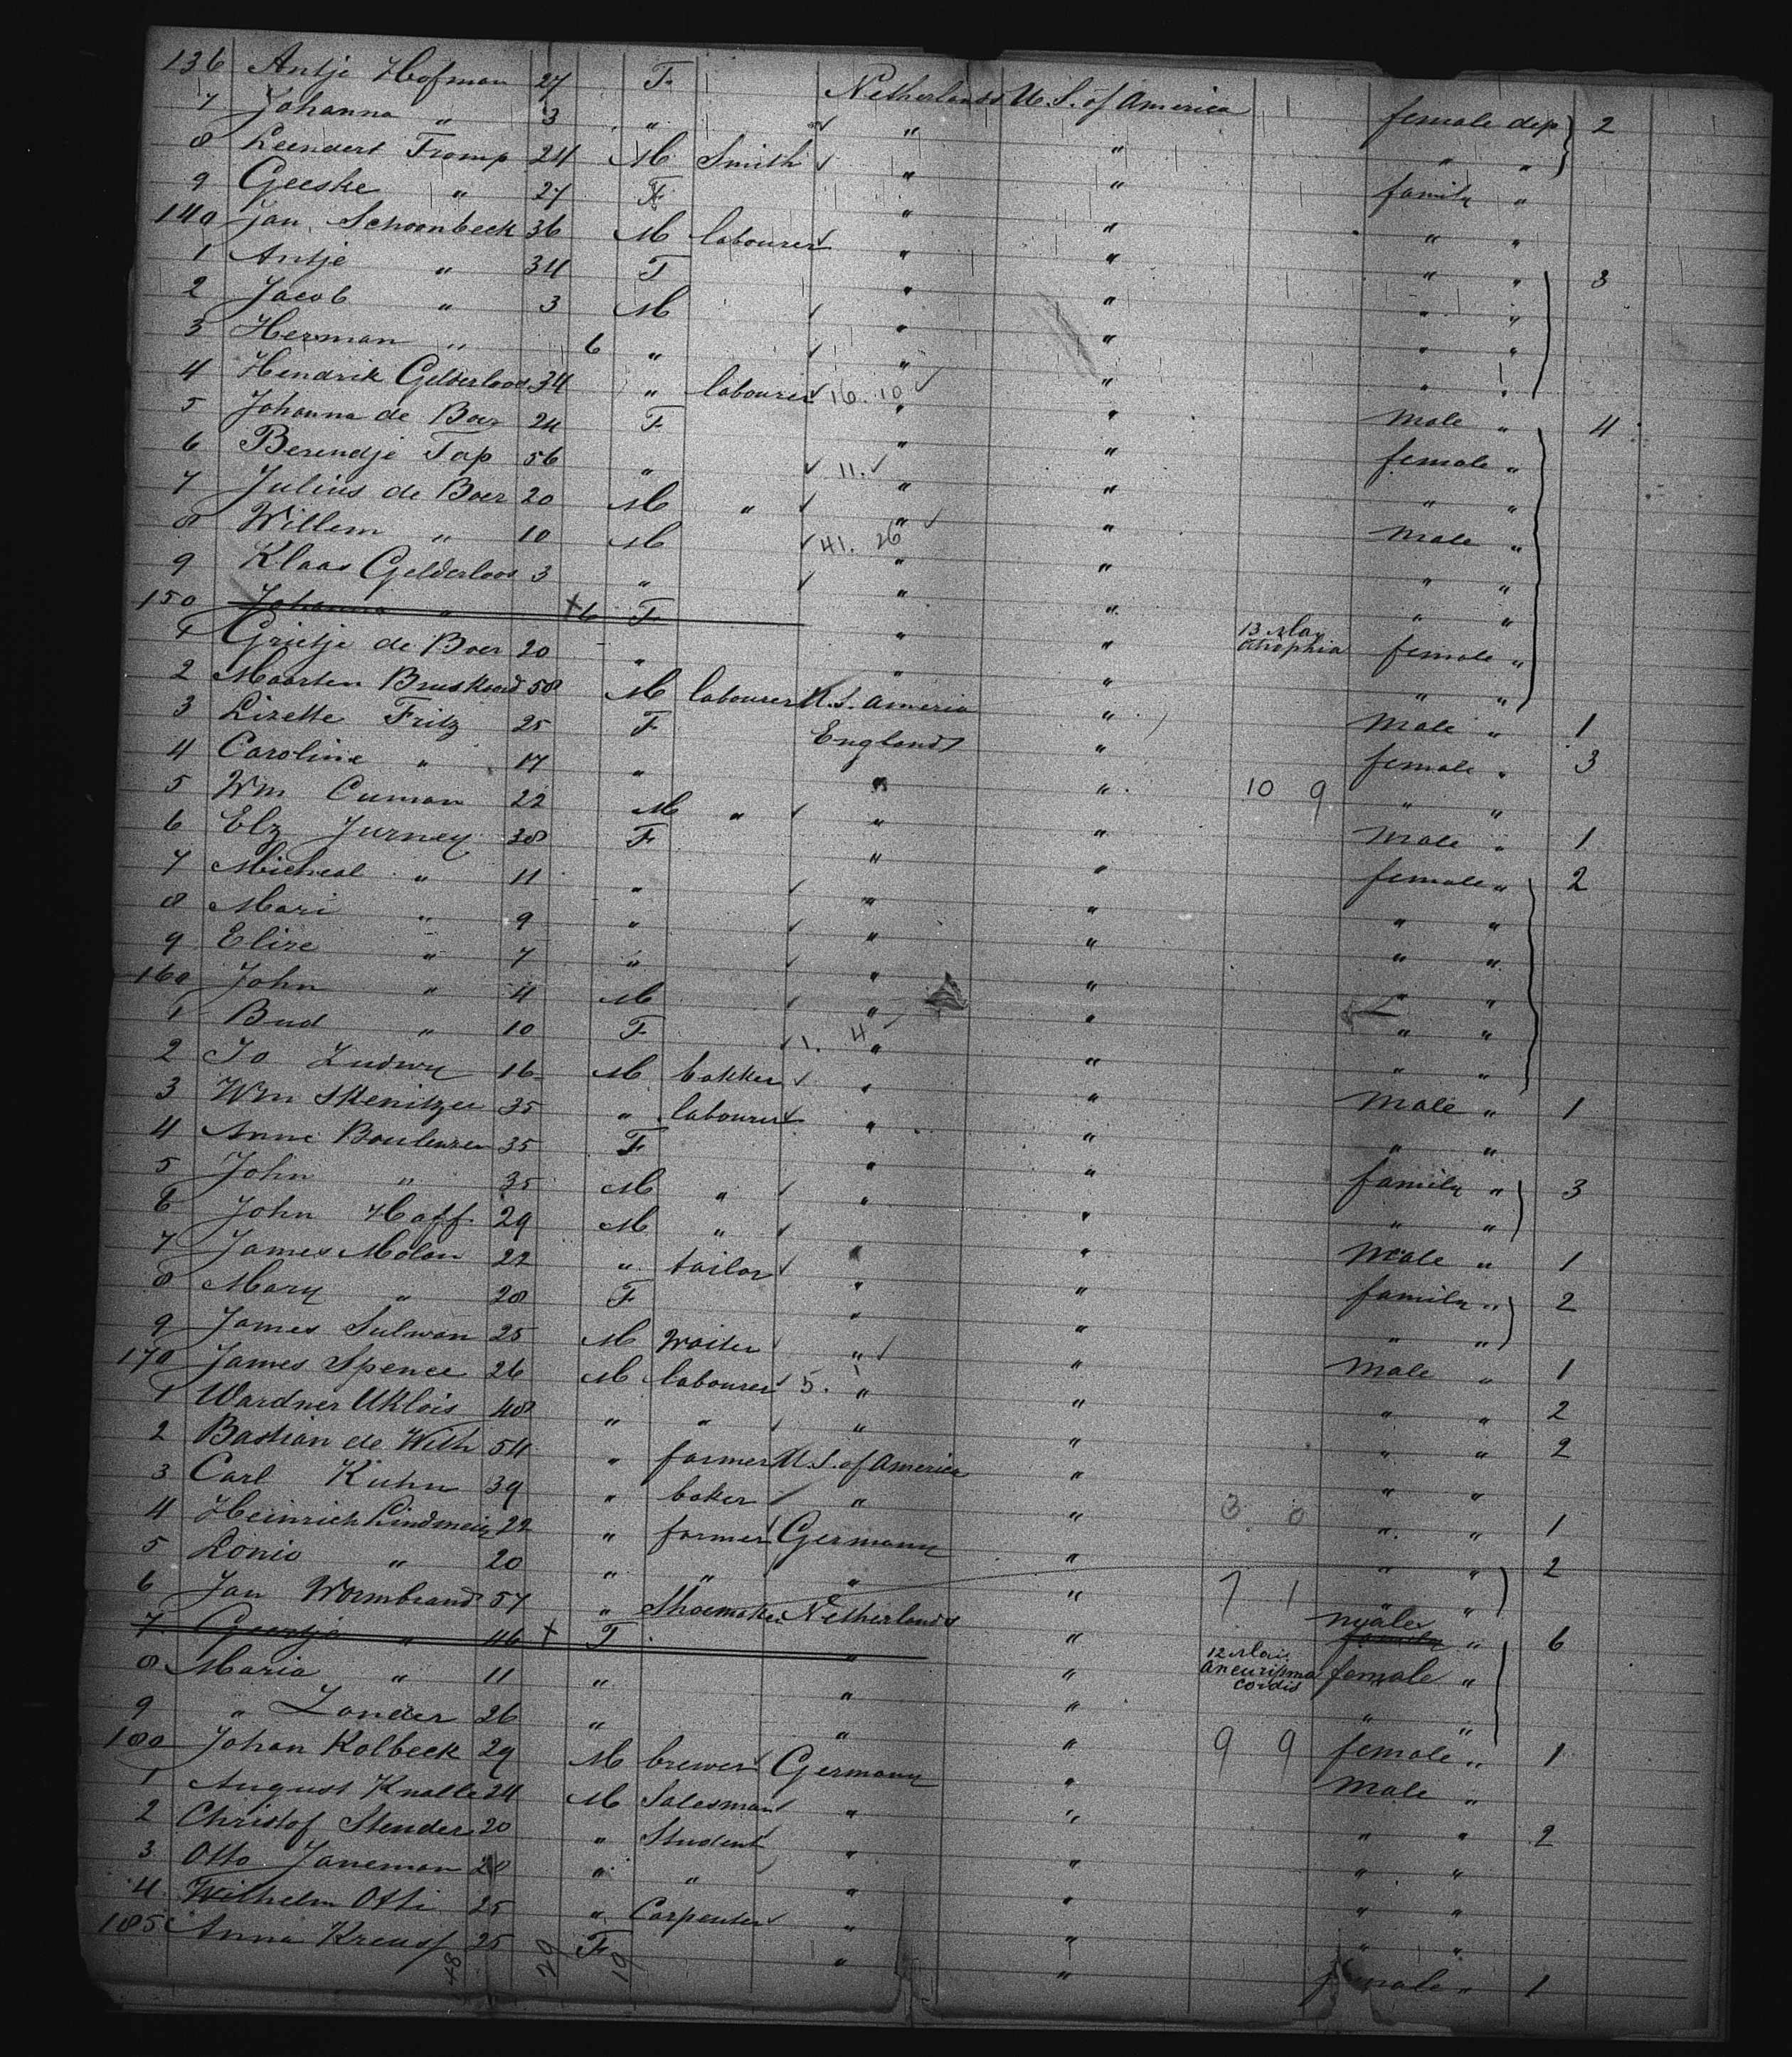 136 Antje Hofman 27 F Netherlands U.S. of America female dep 2
7 Johanna " 3 " " " " "
8 Leendert Tromp 24 M Smith " " family "
9 Geeske " 27 F " " " "
140 Jan Schoonbeek 36 M labourer " " " " 3
1 Antje " 34 F " " " "
2 Jacob " 3 M " " " "
3 Herman " 6 " " " " "
4 Hendrik Gelderloos 34 " labourer 16. 10 " " male " 4
5 Johanna de Boer 24 F " " female "
6 Berendje Tap 56 " 11. " " " "
7 Julius de Boer 20 M " " " male "
8 Willem " 10 M 41. 26 " " " "
9 Klaas Gelderloos 3 " " " " "
150 Johanna " 6 F " " 13 May atrophia female "
1 Grietje de Boer 20 " " " " "
2 Maarten 58 M labourer U.S. America " male " 1
3 Lizette Fritz 25 F England " female " 3
4 Caroline " 17 " " " 10 9 " "
5 Wm Cuman 22 M " " " male " 1
6 Elz Jurney 38 F " " female " 2
7 Micheal " 11 " " " " "
8 Mari " 9 " " " " "
9 Elize " 7 " " " " "
160 John " 4 M " " " "
1 Bud " 10 F 1. 4 " " " "
2 Jo Ludwy 16 M bakker " " male " 1
3 Wm 35 " labourer " " " "
4 Anne 35 F " " family " 3
5 John " 35 M " " " " "
6 John Hoff 29 M " " " male " 1
7 James Molan 22 " tailor " " family " 2
8 Mary " 28 F " " " "
9 James Sulwan 25 M Waiter " " male " 1
170 James Spence 26 M labourer 5. " " " " 2
1 Wardner Uklois 48 " " " " " " 2
2 Bastian de With 54 " farmer U.S. of America " " "
3 Carl Kuhn 39 " baker " " 3. 0 " " 1
4 Heinrich 22 " farmer Germany " " " 2
5 Lonis " 20 " " " " 7 1 " "
6 Jan Wormbrand 57 " Shoemaker Netherlands " male family " 6
7 Geertje " 46 F " " 12 May aneurisma cordis female "
8 Maria " 11 " " " " "
9 " Zander 26 " " " 9 9 female " 1
180 Johan Kolbeck 29 M brewer Germany " male "
1 August Knalle 24 M Salesman " " " " 2
2 Christof Stender 20 " Student " " " "
3 Otto Janeman " " " " " "
4 Wilhelm Otti 25 " Carpenter " " " "
185 Anna Kreuss 25 F " " female " 1
48 29 19